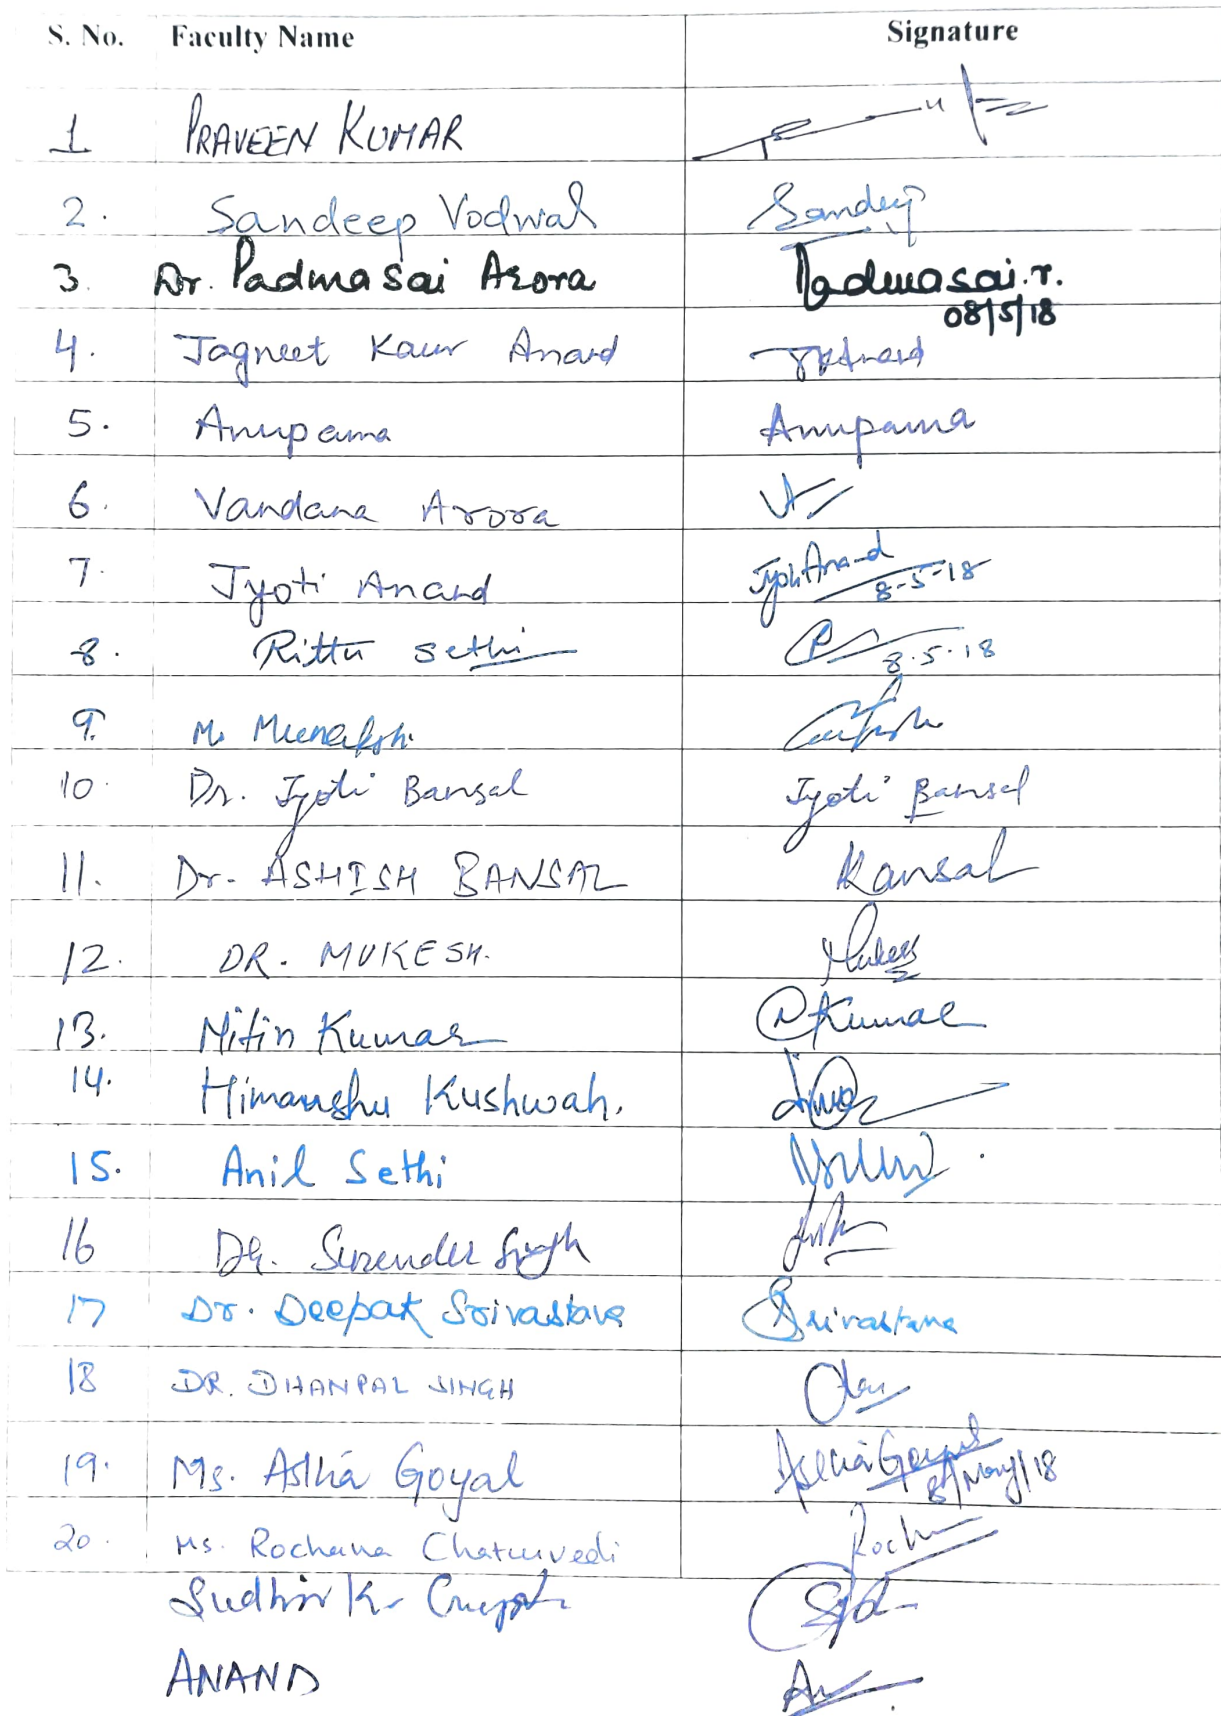 S. No. Faculty Name Signature
1 PRAVEEN KUMAR
2. Sandeep Vodwal Sandeep
3. Dr. Padmasai Arora Padmasai.r.
08/5/18
4. Jagneet Kaur Anand JKAnand
5. Anupama Anupama
6. Vandana Arora VA
7. Jyoti Anand Jyoti Anand
8-5-18
8. Rittu Sethi
8.5.18
9. Meenakshi
10. Dr. Jyoti Bansal Jyoti Bansal
11. Dr. ASHISH BANSAL
12. DR. MUKESH. Mukesh
13. Nitin Kumar Kumar
14. Himanshu Kushwah.
15. Anil Sethi
16 Dr. Surender Singh
17 Dr. Deepak Srivastava Srivastava
18 DR. DHANPAL SINGH
19. Ms. Astha Goyal Astha Goyal
8/May/18
20. Ms. Rochana Chaturvedi
Sudhir Kr Gupta
ANAND